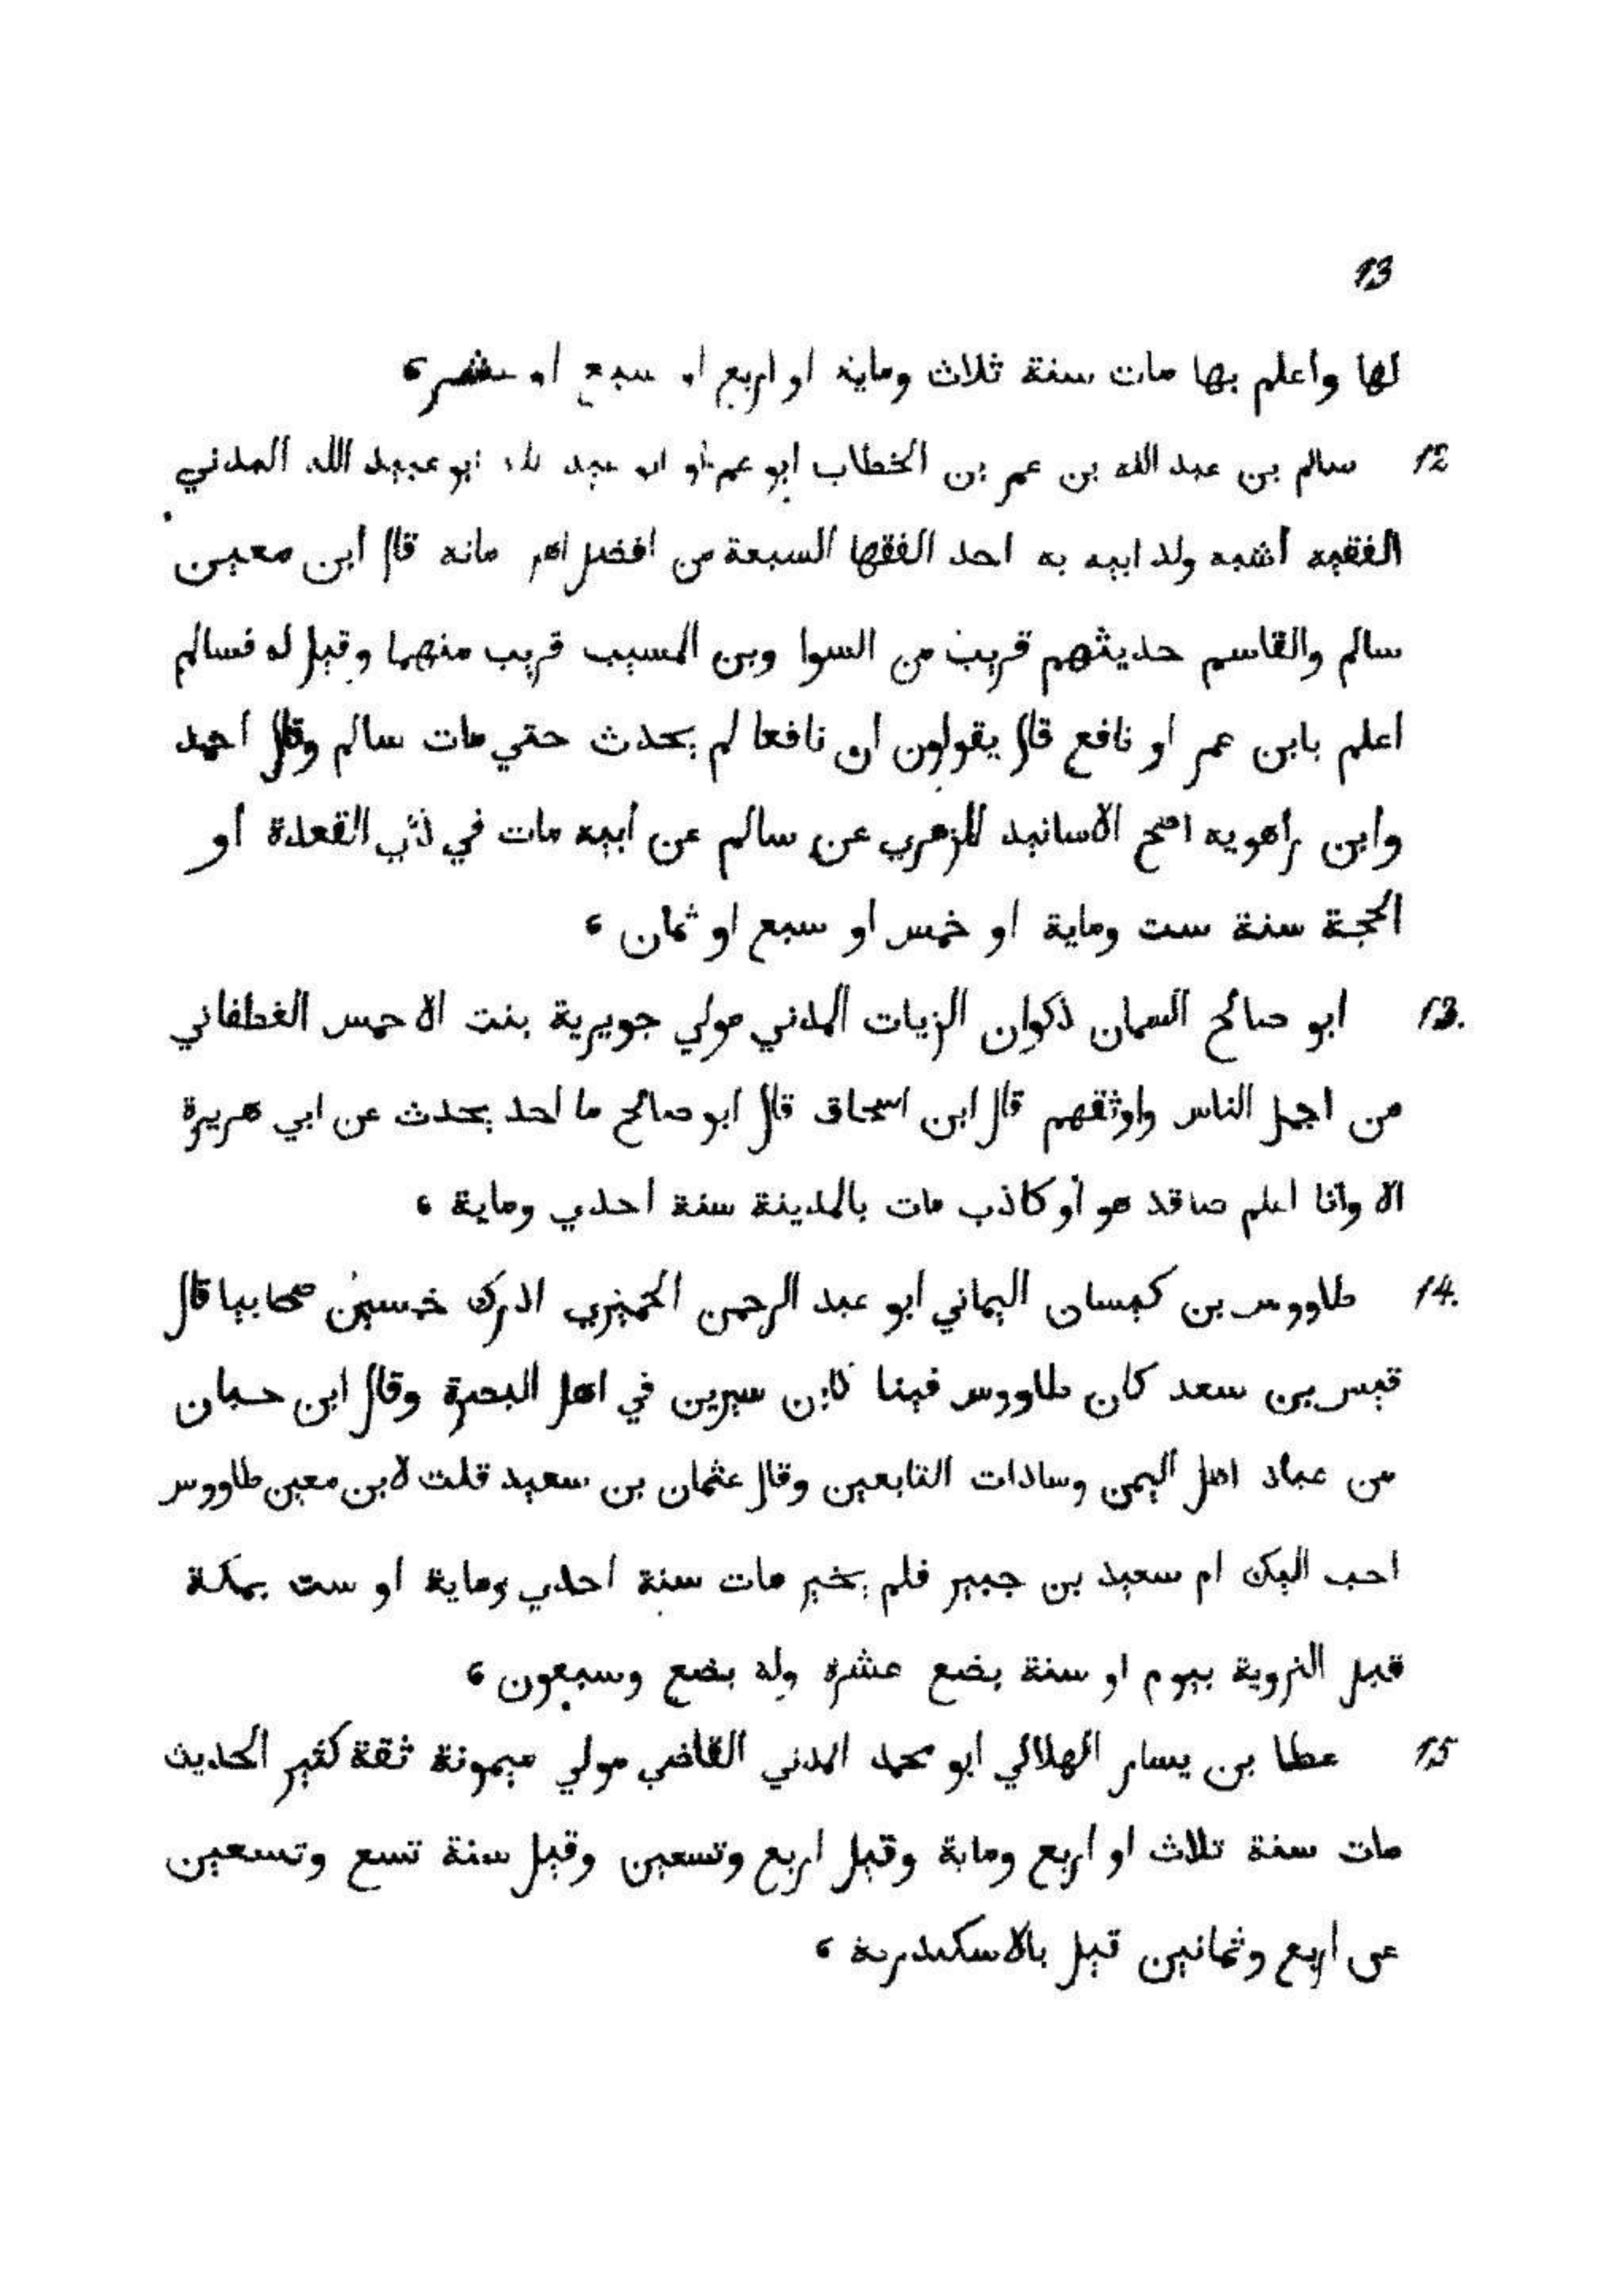 13
لها واعلم بها مات سنة ثلاث وماية او اربع او سبع او عشر ،
12 سالم بن عبد الله بن عمر بن الخطاب ابو عمر او ابو عبد الله ابو عبيد الله المدني
الفقيه أشبه ولد ابيه به احد الفقها السبعة من افضل اهل مانه قال ابن معين
سالم والقاسم حديثهم قريب من السوا وبن المسيب قريب منهما وقيل له فسالم
اعلم بابن عمر او نافع قال يقولون ان نافعا لم يحدث حتي مات سالم وقال احمد
وابن راهويه اصح الاسانيد للزهري عن سالم عن أبيه مات في ذي القعدة أو
الحجة سنة ست وماية او خمس او سبع او ثمان ،
13. ابو صالح السمان ذكوان الزيات المدني مولي جويرية بنت الاحمس الغطفاني
من اجل الناس واوثقهم قال ابن اسحاق قال ابو صالح ما احد يحدث عن ابي هريرة
الا وانا اعلم صاقد هو أو كاذب مات بالمدينة سنة احدي وماية ،
14. طاووس بن كيسان اليماني ابو عبد الرحمن الحميري ادرك خمسين صحابيا قال
قيس بن سعد كان طاووس فينا كابن سيرين في اهل البصرة وقال ابن حبان
من عباد اهل اليمن وسادات التابعين وقال عثمان بن سعيد قلت لابن معين طاووس
احب اليك ام سعيد بن جبير فلم يخير مات سنة احدي وماية او ست بمكة
قبل التروية بيوم او سنة بضع عشرة وله بضع وسبعون ،
15 عطا بن يسار الهلالي ابو محمد المدني القاضي مولي ميمونة ثقة كثير الحديث
مات سنة ثلاث او اربع وماية وقيل اربع وتسعين وقيل سنة تسع وتسعين
عن اربع وثمانين قيل بالاسكندرية ،